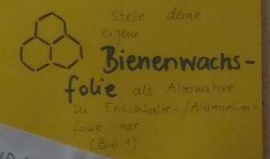 stelle deine
eigene
Bienenwachs-
folie als Alternative
zu Frischhalte-/Aluminium-
folie her
(Bio 1)